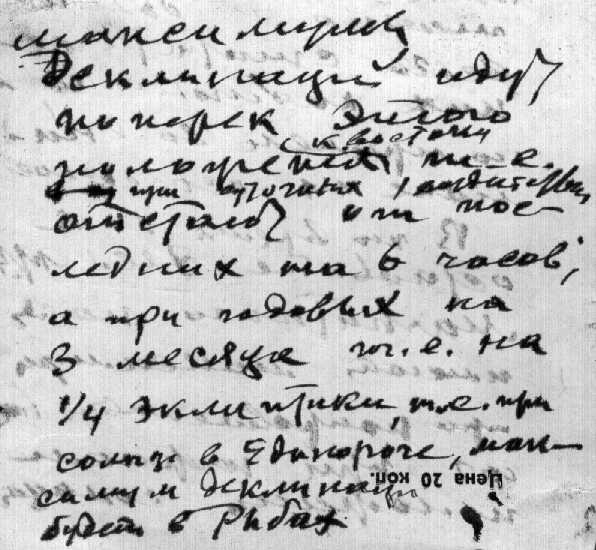 максимум
деклинаций идут
поперек этого
к востоку
положения т.е.
при суточных
отстают от пос-
ледних на 6 часов,
а при годовых на
3 месяца т.е. на
1/4 эклиптики, т.е. при
солнце в Единороге, мак-
симум деклинации
будет в Рыбах
Цена 20 коп.